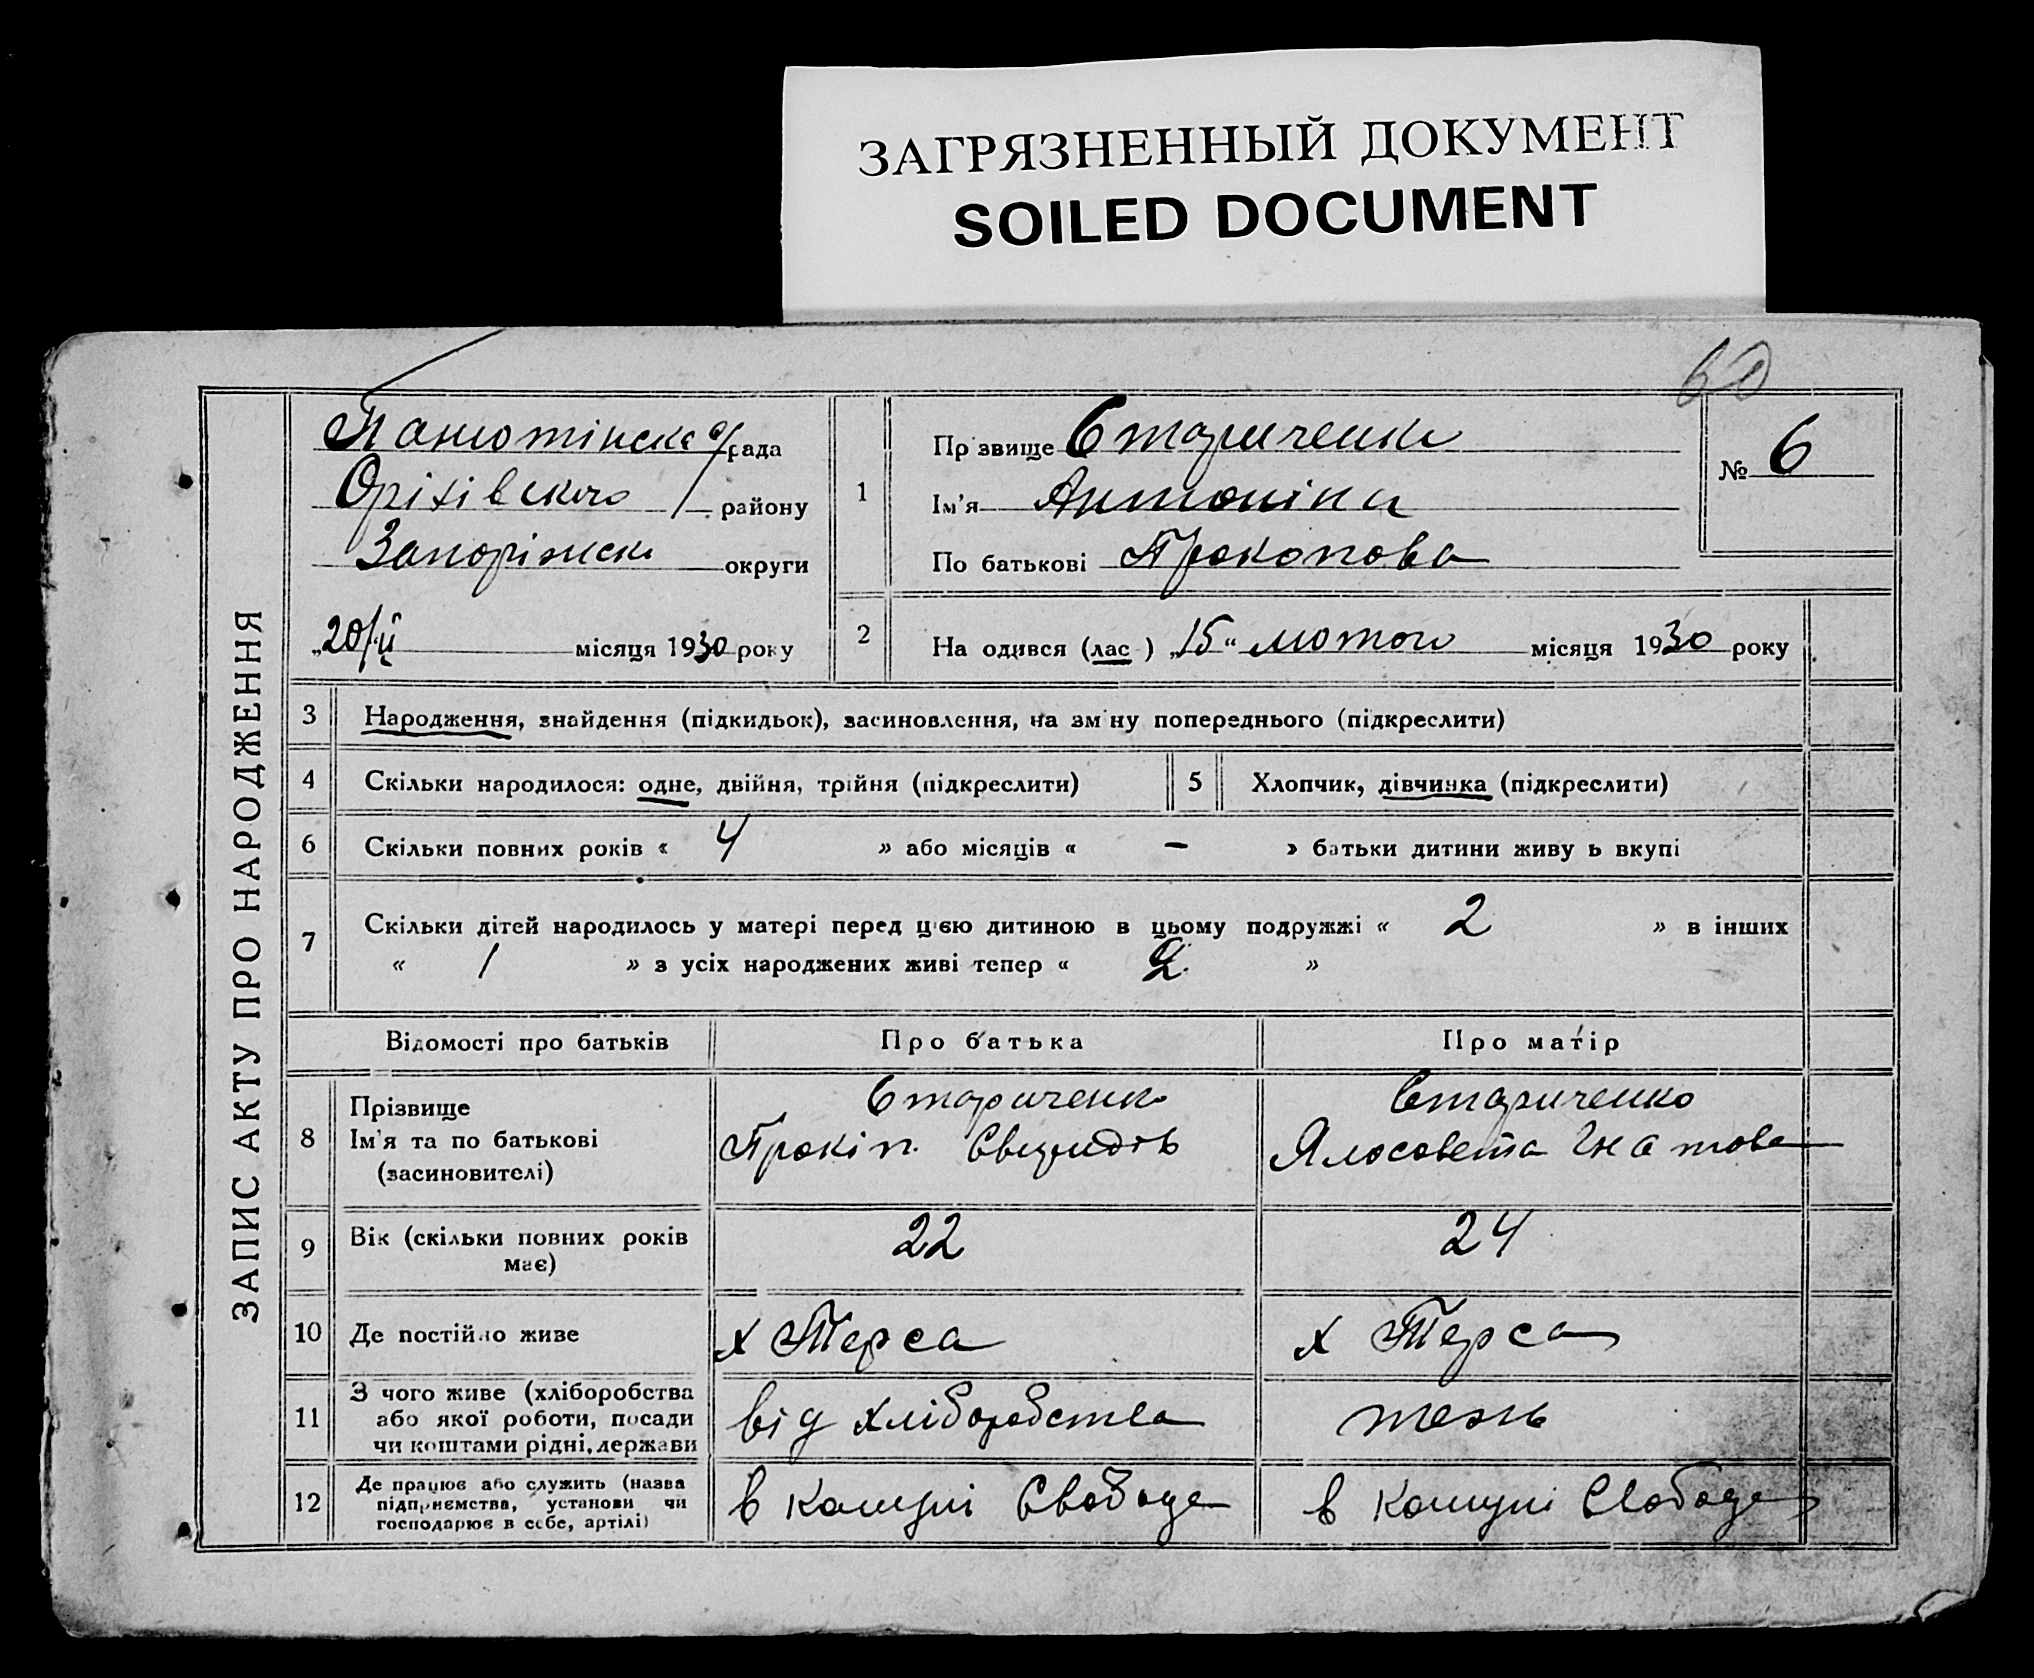 ЗАГРЯЗНЕННЫЙ ДОКУМЕНТ
SOILED DOCUMENT
60
ЗАПИС АКТУ ПРО НАРОДЖЕННЯ
Панютінська с/рада
Оріхівського району
Запоріжськ округи
„20/ІІ місяця 1930 року
1
Прізвище Стариченко
Ім'я Антоніна
По батькові Прокопова
№ 6
2
На одився (лас ) „15“ лютого місяця 1930 року
3 Народження, знайдення (підкидьок), засиновлення, на зміну попереднього (підкреслити)
4 Скільки народилося: одне, двійня, трійня (підкреслити) 5 Хлопчик, дівчинка (підкреслити)
6 Скільки повних років « 4 » або місяців « — » батьки дитини живу ь вкупі
7 Скільки дітей народилось у матері перед цією дитиною в цьому подружжі « 2 » в інших
« 1 » з усіх народжених живі тепер « 2 »
Відомості про батьків Про батька Про матір
8 Прізвище
Ім'я та по батькові
(засиновителі)
Стариченко
Прокіп
Стариченко
Ялосовета Гнатова
9 Вік (скільки повних років
має)
22 24
10 Де постійно живе х Терса х Терса
11 З чого живе (хліборобства
або якої роботи, посади
чи коштами рідні, держави
від хліборобства теж
12 Де працює або служить (назва
підприємства, установи чи
господарює в себе, артілі)
в комуні Свобода в комуні Свобода